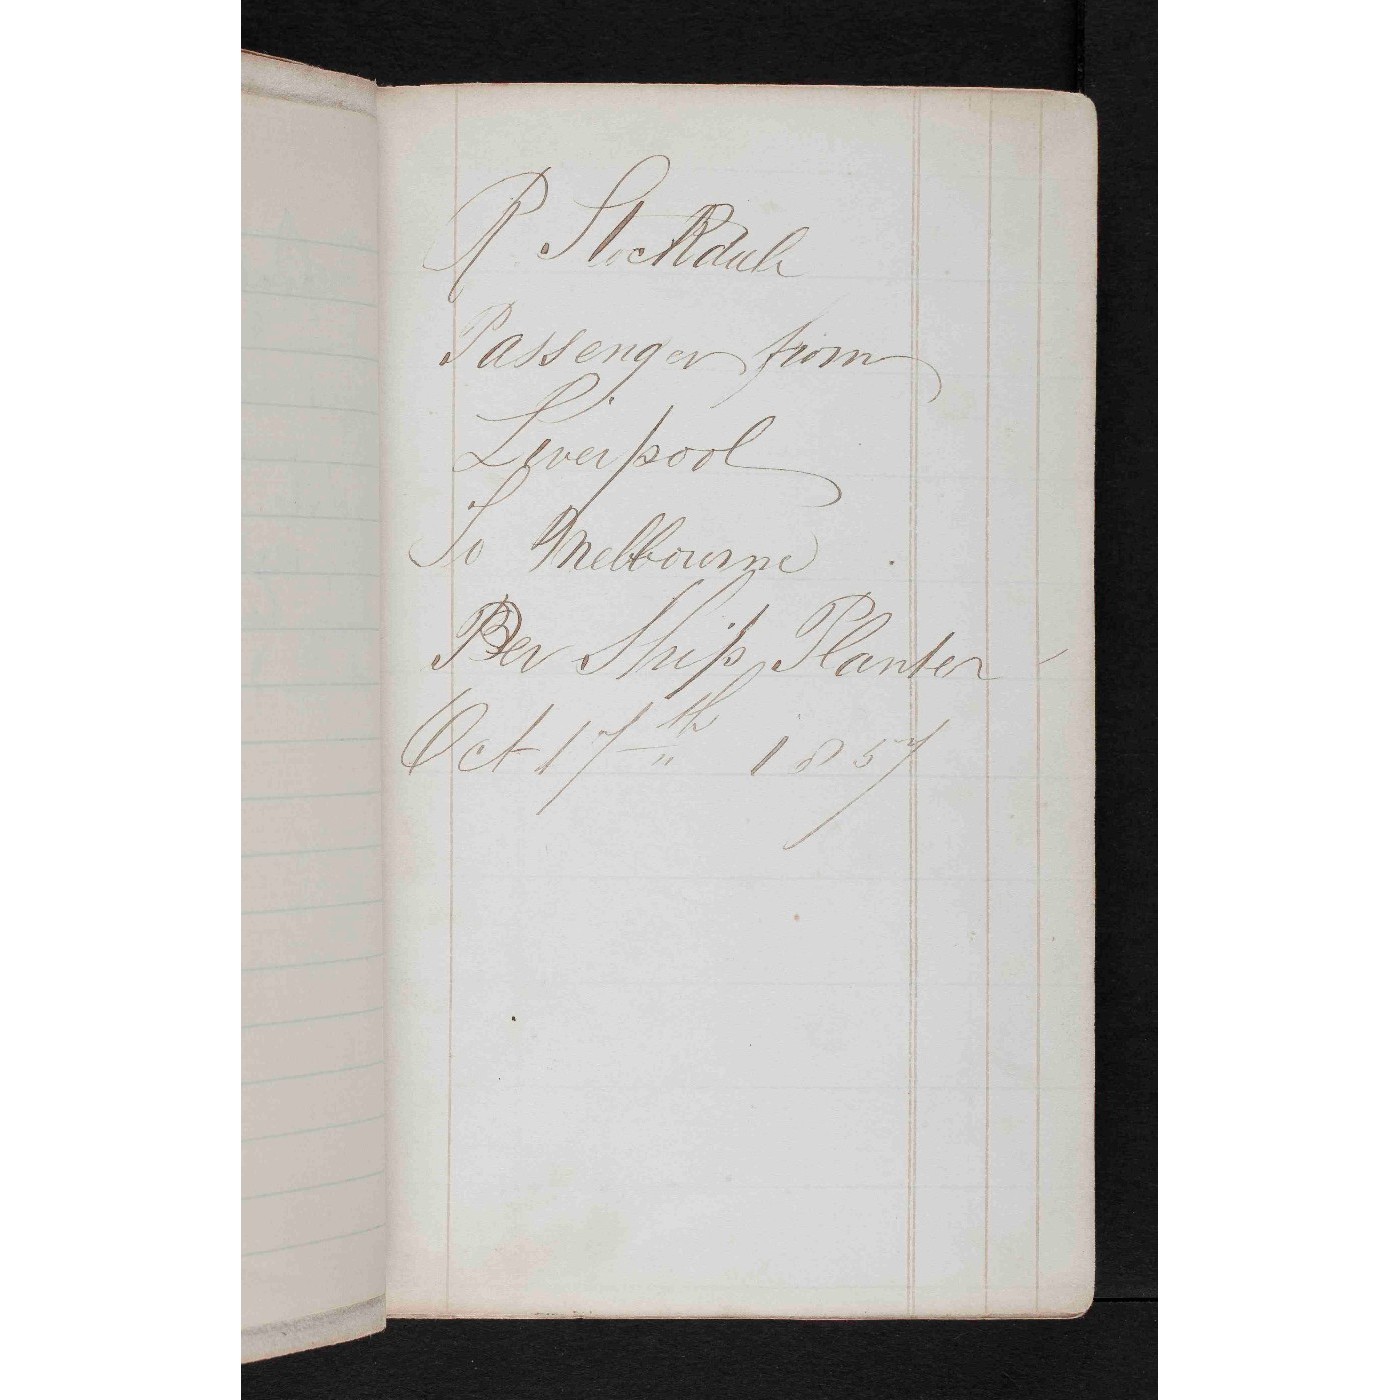 R Stockdale
Passenger from
Liverpool
To Melbourne
Per Ship Planter
Oct 17th 1857